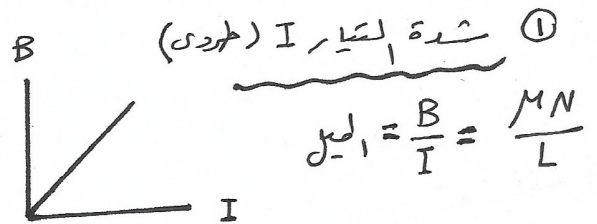 ① شدة التيار I (طردى)
B
الميل = B/I = μN/L
I